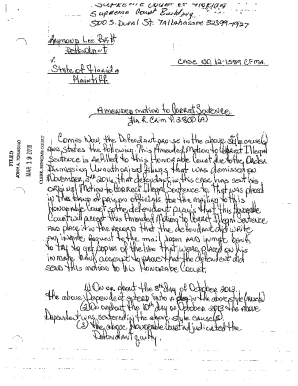 Supreme Court of Florida
Supreme Court Building
500 S. Duval St. Tallahassee 32399-1927
Raymond Lee
Defendant
V.
State of Florida
Plaintiff
Case No. 12-1589 CFMA
Amended motion to Correct Sentence
Fla. R. Crim. P. 3.800(A)
Comes Now the Defendant pro se in the above style cause
and states the following This Amended Motion to Correct Illegal
Sentence is filed to this Honorable Court due to the
Dismissing filings that was dismissed on
November 3rd that defendant in this case has sent his
original Motion to Correct Illegal Sentence to that was placed
in the hand of prison officials for the mailing to this
Honorable Court so the defendant prays that this Honorable
Court will accept this Amended Motion to Correct Illegal Sentence
and place it in the record that the defendant did write
an inmate request to the mail room and inmate bank
to try to get copies of the that were placed on his
inmate bank account to prove that the defendant did
send this motion to his Honorable Court.
1) On or about the 8th day of October 2013
the above Defendant entered into a plea in the above style
(2) On or about the 10th day of October 2013 the above
Defendant was sentenced in the above style cause
3) The above Honorable Court adjudicated the
Defendant guilty.
FILED
JOHN A. TOMASINO
MAR 19 2018
CLERK, SUPREME COURT